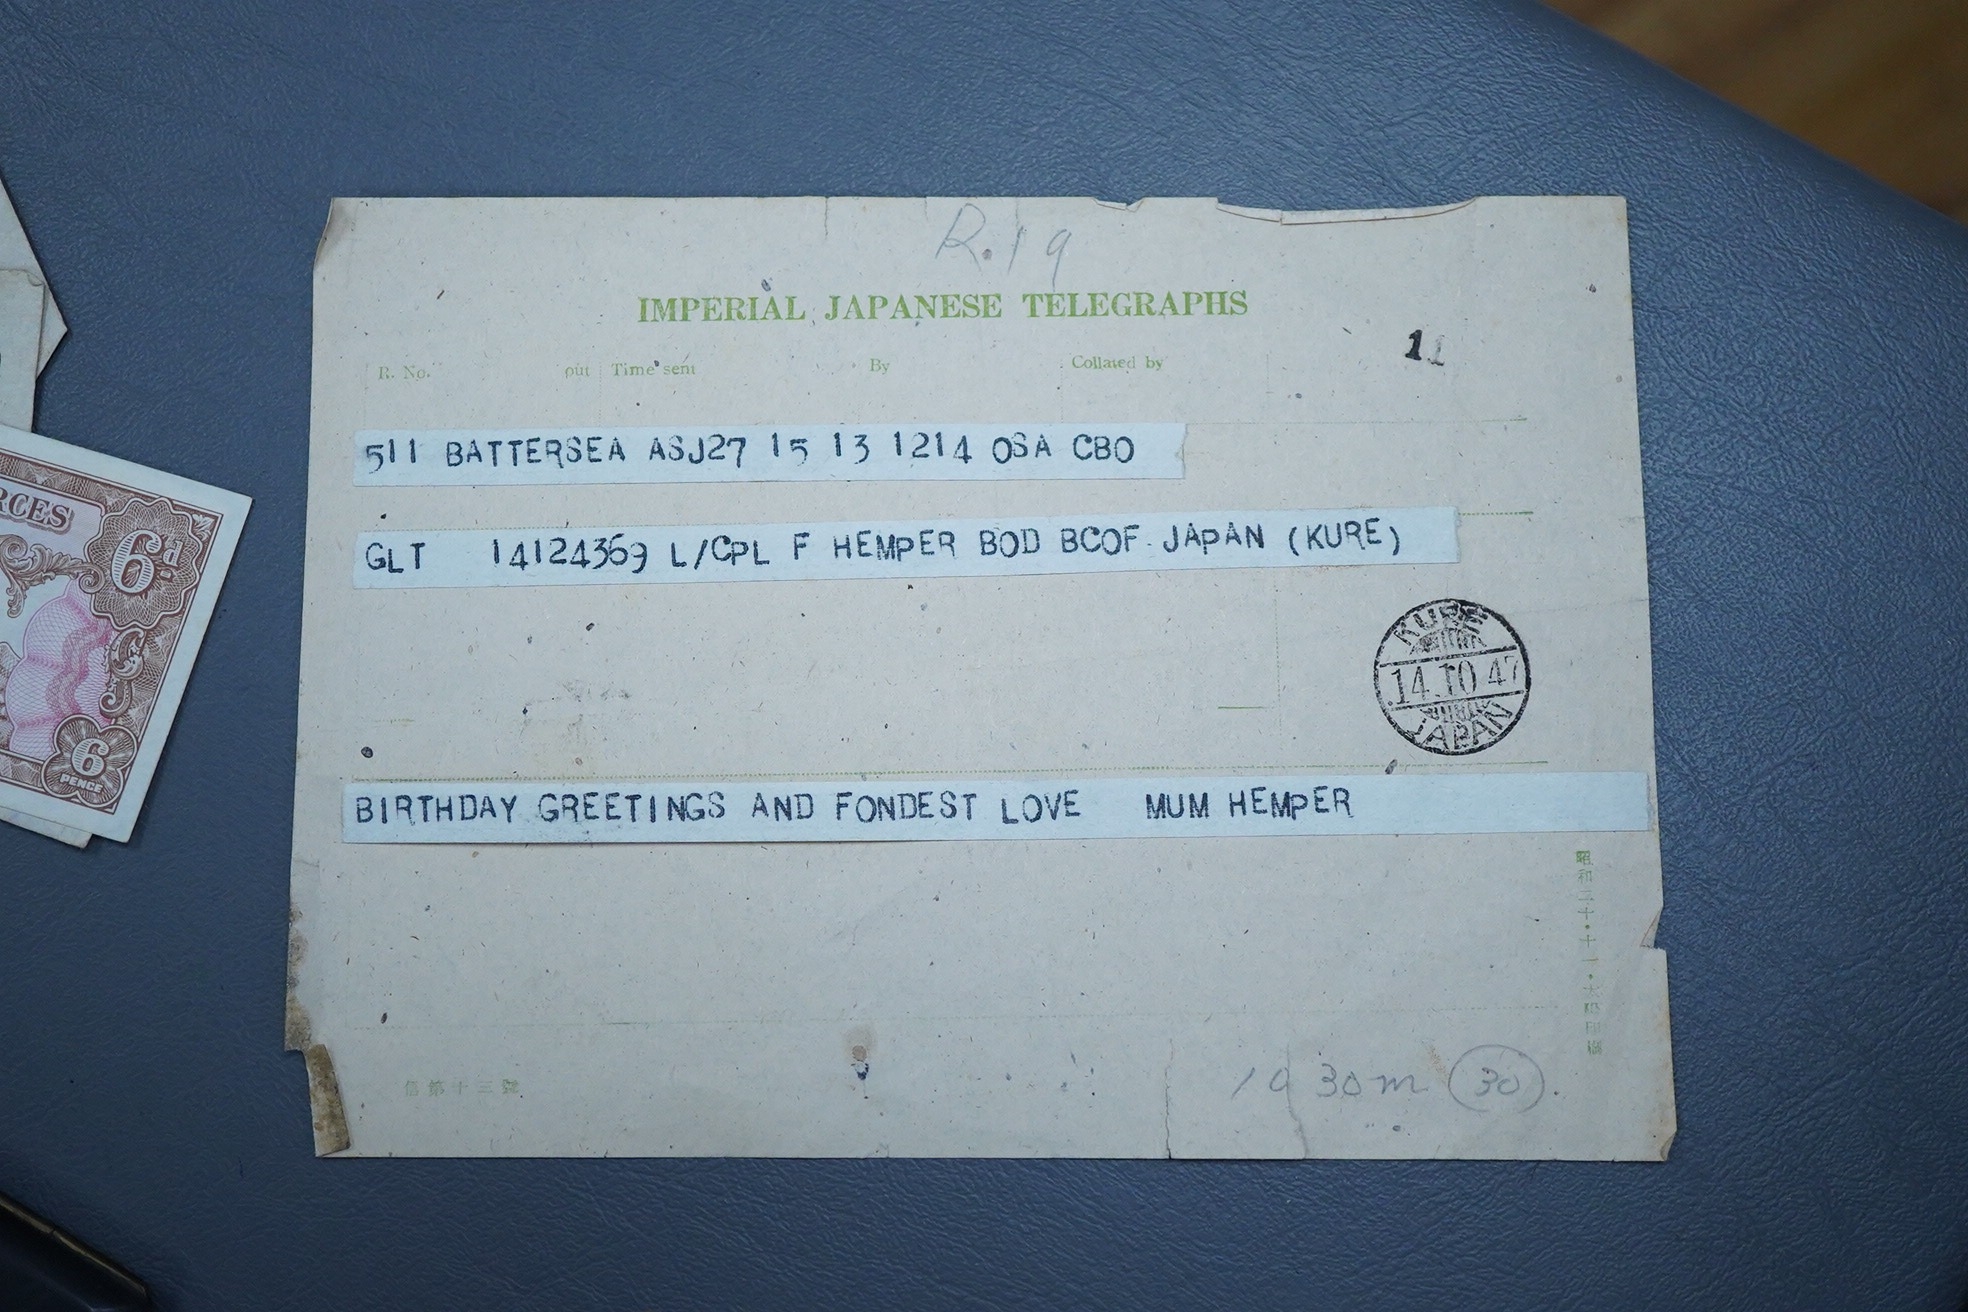 R.19
IMPERIAL JAPANESE TELEGRAPHS
R. No. put Time sent By Collated by
11
511 BATTERSEA ASJ27 15 13 1214 OSA CBO
GLT 14124369 L/CPL F HEMPER BOD BCOF JAPAN (KURE)
KURE
14.10.47
JAPAN
BIRTHDAY GREETINGS AND FONDEST LOVE MUM HEMPER
昭和二十・十一・大阪印
信第十三號
19 30m 30.
RCES
6d.
6
PENCE